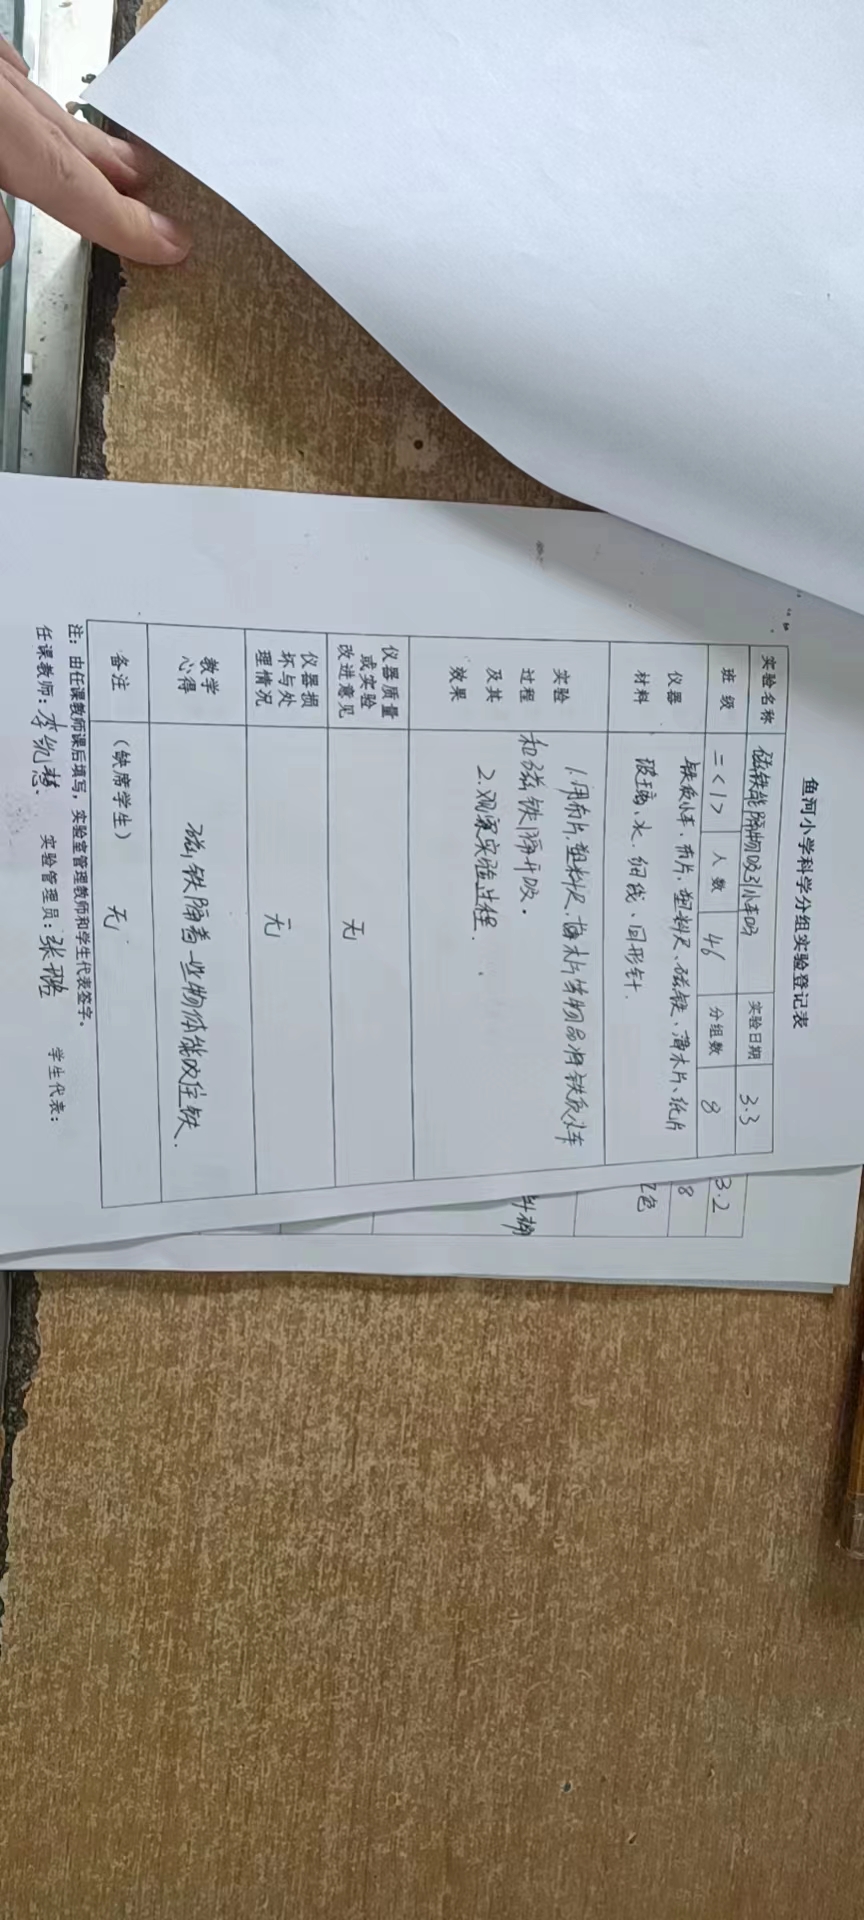 鱼河小学科学分组实验登记表
实验名称 磁铁能隔物吸引小车吗 实验日期 3.3
班级 二<1> 人数 46 分组数 8
仪器材料 铁质小车、布片、塑料尺、磁铁、薄木片、纸片
玻璃、水、细线、回形针.
实验过程及其效果 1.用布片、塑料尺、薄木片等物品将铁质小车
和磁铁隔开吸。
2.观察实验过程.
仪器质量或实验改进意见 无
仪器损坏与处理情况 无
教学心得 磁铁隔着一些物体能吸住铁.
备注 (缺席学生) 无
注：由任课教师课后填写，实验室管理教师和学生代表签字。
任课教师：李 实验管理员：张 学生代表：
3.2
8